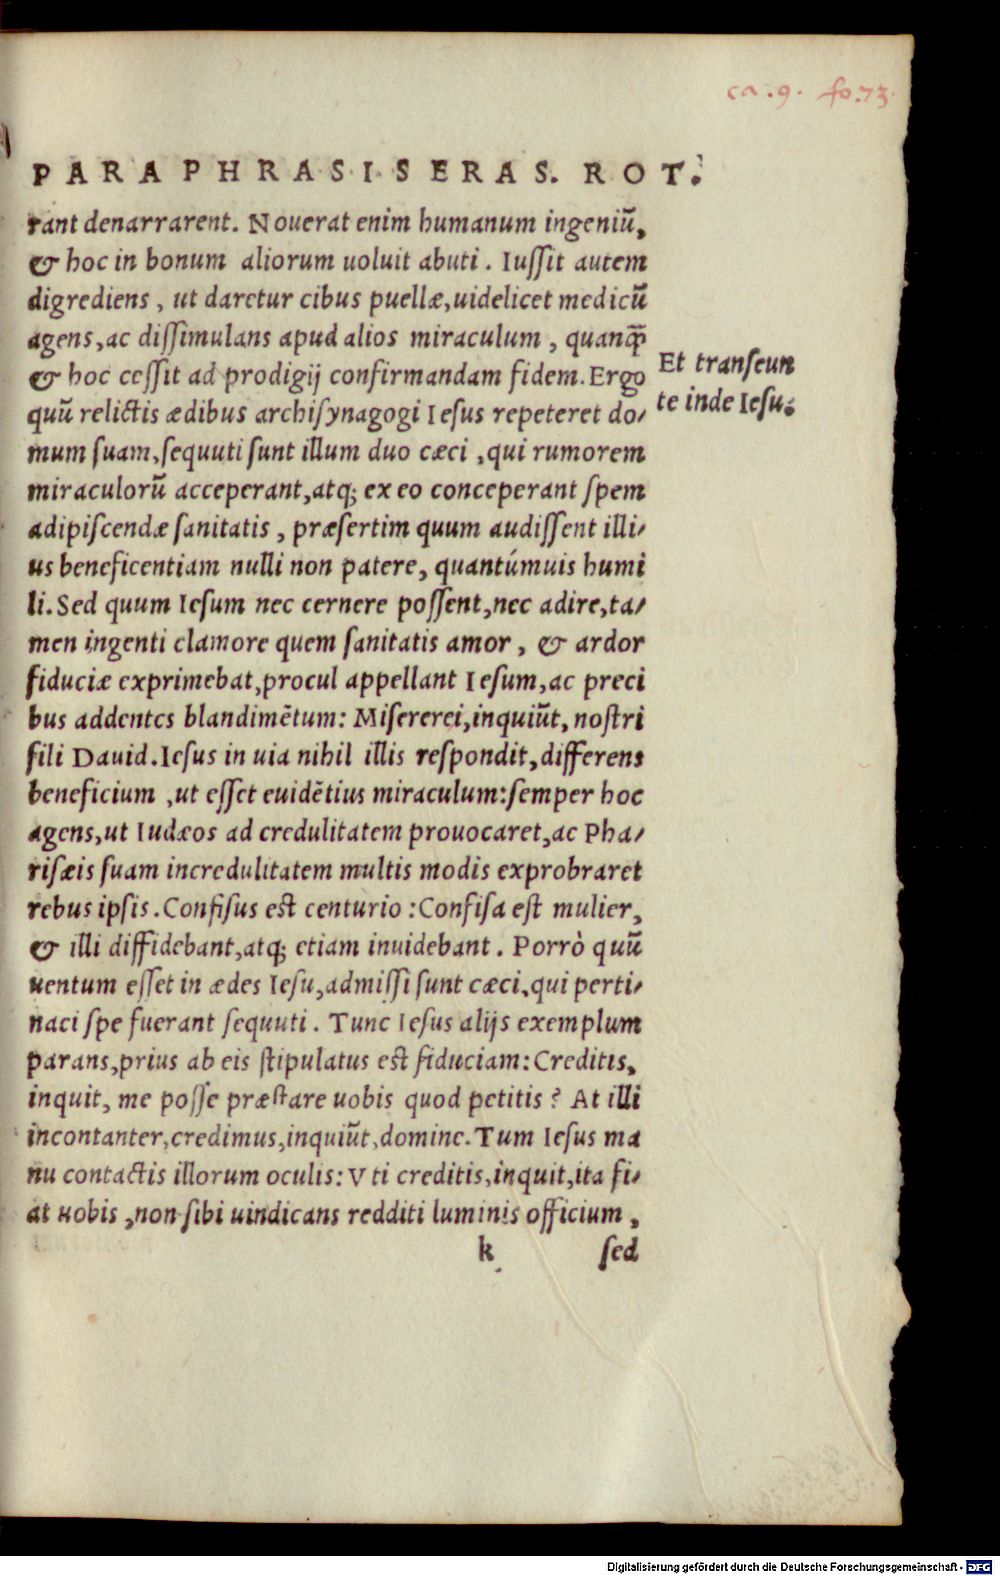 ca. 9. fo. 73.
PARAPHRASIS ERAS. ROT.
rant denarrarent. Nouerat enim humanum ingeniū,
& hoc in bonum aliorum uoluit abuti. Iussit autem
digrediens, ut daretur cibus puellæ, uidelicet medicū
agens, ac dissimulans apud alios miraculum, quanq̃
& hoc cessit ad prodigij confirmandam fidem. Ergo
quū relictis ædibus archisynagogi Iesus repeteret do/
mum suam, sequuti sunt illum duo cæci, qui rumorem
miraculorū acceperant, atq; ex eo conceperant spem
adipiscendæ sanitatis, præsertim quum audissent illi/
us beneficentiam nulli non patere, quantúmuis humi
li. Sed quum Iesum nec cernere possent, nec adire, ta/
men ingenti clamore quem sanitatis amor, & ardor
fiduciæ exprimebat, procul appellant Iesum, ac preci
bus addentes blandimētum: Miserere, inquiūt, nostri
fili Dauid. Iesus in uia nihil illis respondit, differens
beneficium, ut esset euidētius miraculum: semper hoc
agens, ut Iudæos ad credulitatem prouocaret, ac Pha/
risæis suam incredulitatem multis modis exprobraret
rebus ipsis. Confisus est centurio: Confisa est mulier,
& illi diffidebant, atq; etiam inuidebant. Porrò quū
uentum esset in ædes Iesu, admissi sunt cæci, qui perti/
naci spe fuerant sequuti. Tunc Iesus alijs exemplum
parans, prius ab eis stipulatus est fiduciam: Creditis,
inquit, me posse præstare uobis quod petitis? At illi
incontanter, credimus, inquiūt, domine. Tum Iesus ma
nu contactis illorum oculis: Vti creditis, inquit, ita fi/
at uobis, non sibi uindicans redditi luminis officium,
k sed
Et transeun
te inde Iesu.
Digitalisierung gefördert durch die Deutsche Forschungsgemeinschaft - DFG